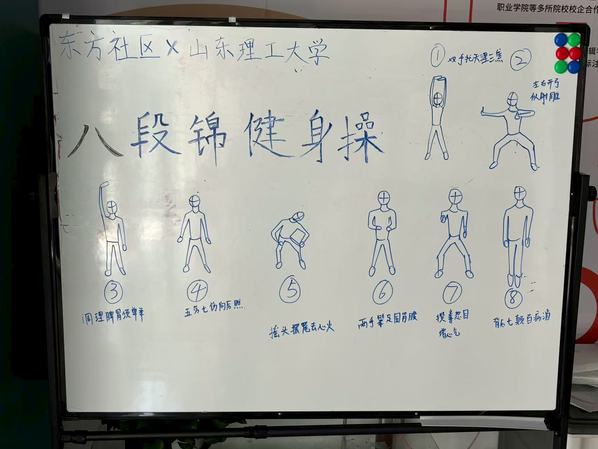 职业学院等多所院校校企合作
东方社区×山东理工大学
八段锦健身操
① 双手托天理三焦
② 左右开弓
似射雕
③
调理脾胃须单举
④
五劳七伤向后瞧
⑤
摇头摆尾去心火
⑥
两手攀足固肾腰
⑦
攒拳怒目
增气
⑧
背后七颠百病消